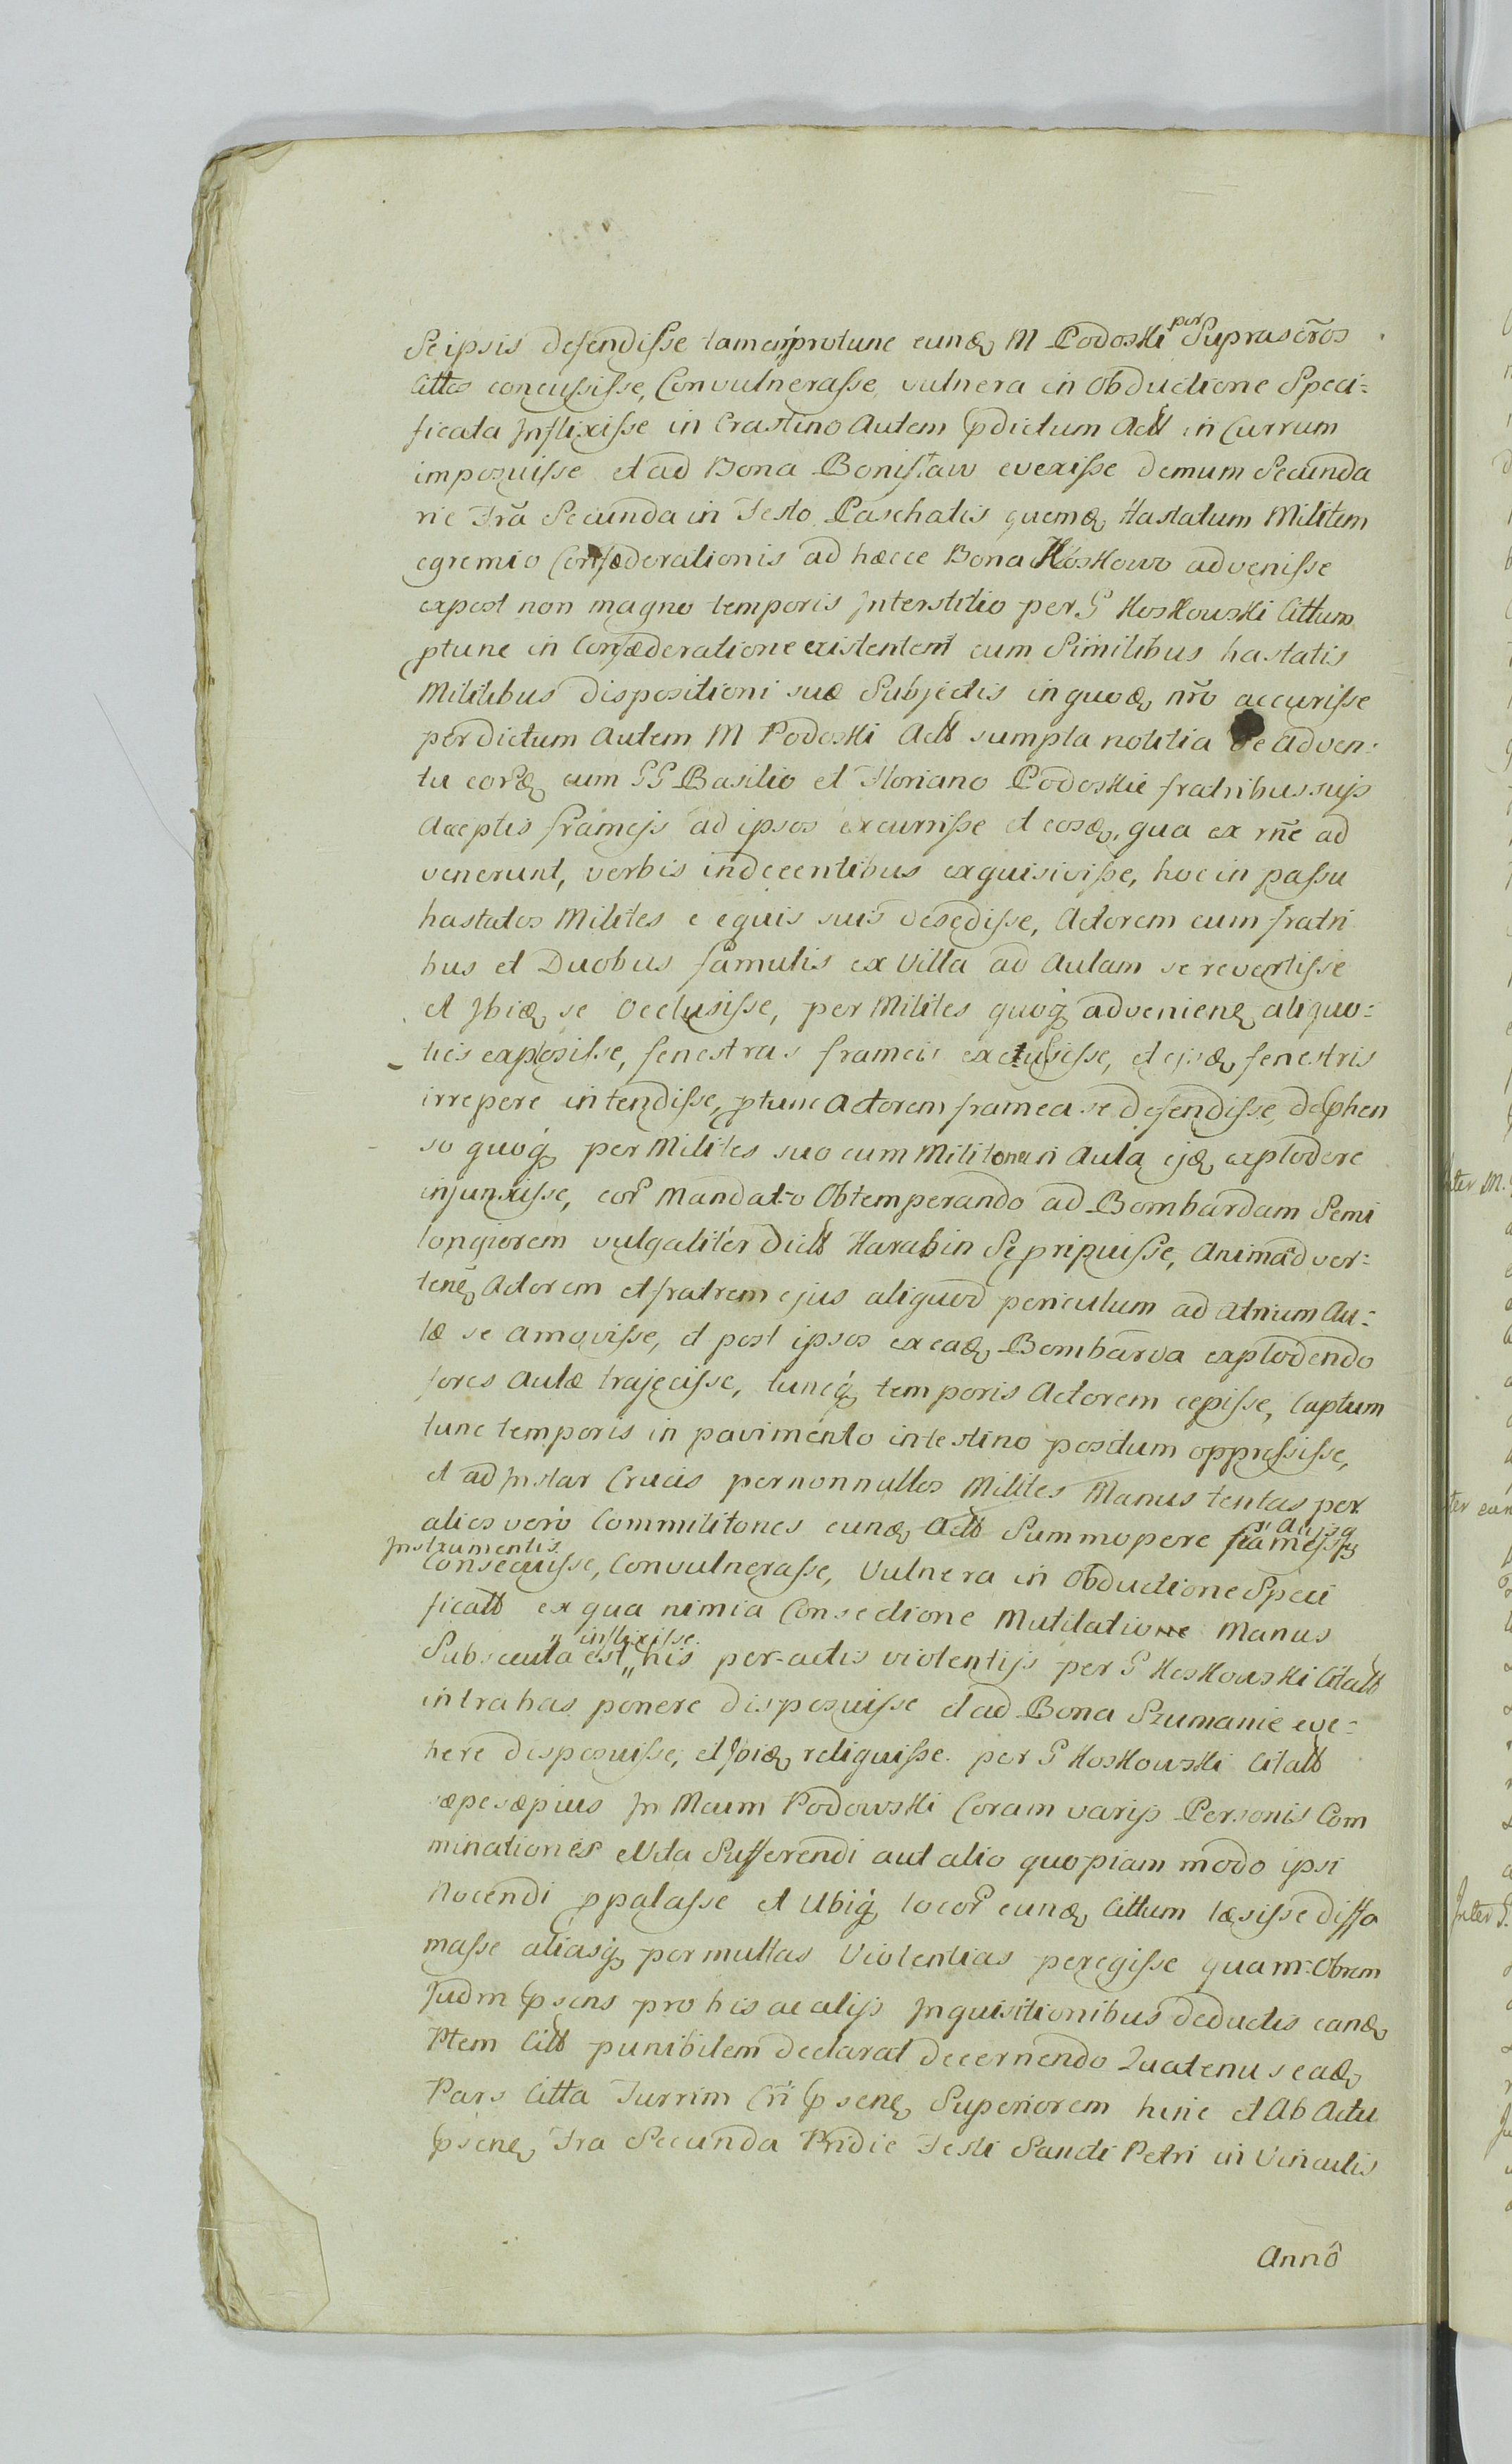 Seipsis defendisse tamen protunc eundq M Podoski per Suprascr̃os
Cittos concussisse, Convulnerasse, vulnera in Obductione Speci=
ficata Inflixisse in Crastino Autem pdictum Actt in Currum
imposuisse et ad Bona Bonisław evexisse demum Secunda
rie Fr̃a Secunda in Festo Paschatis quemdq Hastatum Militem
egremio Confæderationis ad hæcce Bona Koskowo advenisse
expost non magno temporis Interstitio per G Koskowski Cittum
ptunc in Confæderatione existentem cum Similibus hastatis
Militibus dispositioni suæ Subjectis in quodq nr̃o accurisse
per dictum Autem M Podoski Actt sumpta notitia de adven=
tu eordq cum GG Basilio et Floriano Podoskie fratribus suis
Acceptis frameis ad ipsos excurrisse et eosdq, qua ex rñe ad
venerunt, verbis indecentibus exquisivisse, hoc in passu
hastatos Milites e equis suis desedisse, Actorem cum fratri
bus et Duobus famulis ex Villa ad Aulam se revertisse
et Ibidq se Occlusisse, per Milites quoq advenienq aliquo=
ties explosisse, fenestras frameis exclusisse, et ejsdq fenestris
irrepere intendisse, ptunc Actorem framea se defendisse, dephen
so quoq per Milites suo cum Militonari Aula ejdq explodere
injunxisse, eor Mandato Obtemperando ad Bombardam Semi
longiorem vulgaliter dictt Karabin Se pripuisse, Animadver=
tenq Actorem et fratrem ejus aliquod periculum ad atrium Au=
læ se amovisse, et post ipsos ex eadq Bombarda explodendo
fores Aulæ trajecisse, tuncq temporis Actorem cepisse, Captum
tunc temporis in pavimento intestino positum oppressisse,
et ad Instar Crucis per nonnullos Milites Manus tentas per
alios vero Commilitones eundq Actt Summopere frameis alysq
Instrumentis
Consecuisse, Convulnerasse, Vulnera in Obductione Speci
ficatt ex qua nimia Consectione Mutilatione Manus
Subsecuta est " inflixisse. his per-actis violentijs per G Koskowski Citatt
in trahas ponere disposuisse et ad Bona Szumanie eve=
here disposuisse, et Ibidq reliquisse. per G Koskowski Citatt
sæpesæpius In Mcum Podowski Coram varijs Personis Com
minationes e Vita Sufferendi aut alio quopiam modo ipsi
Nocendi ppalasse et Ubiq locor eundq Cittum læsisse diffa
masse aliasq permultas Violentias peregisse quam Obrem
Judm psens pro his ac alijs Inquisitionibus deductis eandq
Ptem Citt punibilem declarat decernendo Quatenus eadq
Pars Citta Turrim Cri psenq Superiorem hinc et Ab Actu
psenq Fra Secunda Pridie Festi Sancti Petri in Vinculis
Annô